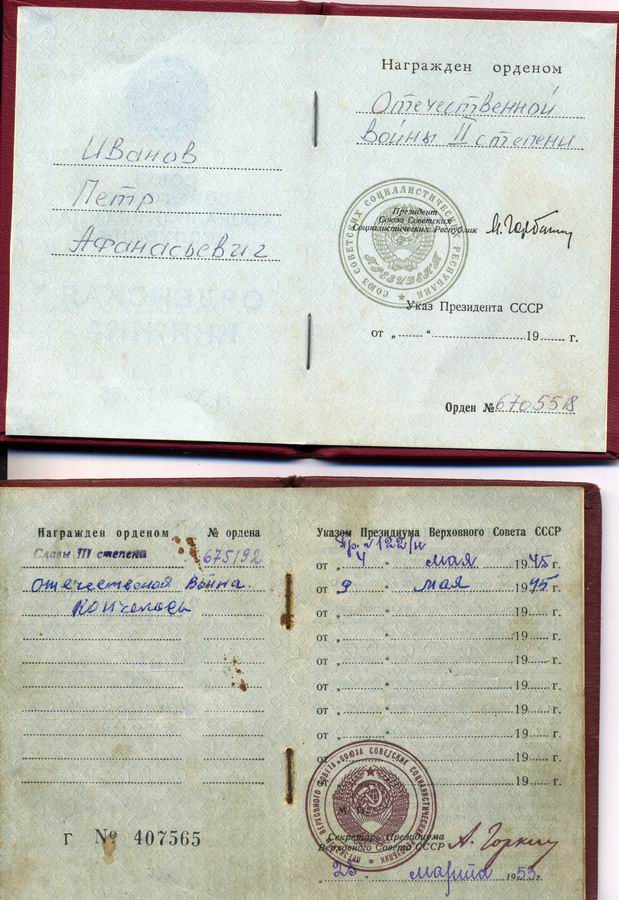 Иванов
Петр
Афанасьевич
Награжден орденом
Отечественной
войны II степени
СОЮЗ СОВЕТСКИХ СОЦИАЛИСТИЧЕСКИХ РЕСПУБЛИК
ПРЕЗИДЕНТ
Президент
Союза Советских
Социалистических Республик
Указ Президента СССР
от „ “ 19 г.
Орден № 6705518
Награжден орденом № ордена
Славы III степени 675192
Отечественой Война
Кончелась
Указом Президиума Верховного Совета СССР
Пр. № 122/н
от „ 4 “ мая 1945 г.
от „ 9 “ мая 1945 г.
от „ “ 19 г.
от „ “ 19 г.
от „ “ 19 г.
от „ “ 19 г.
от „ “ 19 г.
от „ “ 19 г.
от „ “ 19 г.
от „ “ 19 г.
Г № 407565
ПРЕЗИДИУМ ВЕРХОВНОГО СОВЕТА СОЮЗА СОВЕТСКИХ СОЦИАЛИСТИЧЕСКИХ РЕСПУБЛИК
М. П.
Секретарь Президиума
Верховного Совета СССР
А. Горкин
„ 23 “ марта 1955 г.